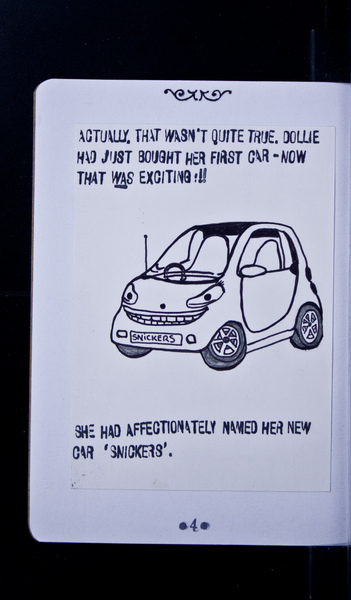 ACTUALLY, THAT WASN'T QUITE TRUE. DOLLIE
HAD JUST BOUGHT HER FIRST CAR - NOW
THAT WAS EXCITING!!!
SNICKERS
SHE HAD AFFECTIONATELY NAMED HER NEW
CAR 'SNICKERS'.
•4•